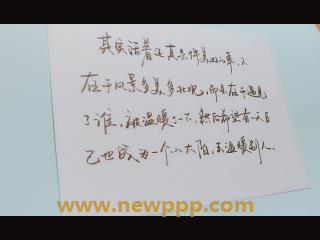 其实活着还真是件美好的事，不
在于风景多美多壮观，而是在于遇见
了谁，被温暖了一下，然后希望有一天自
己也成为一个小太阳，去温暖别人．
www.newppp.com